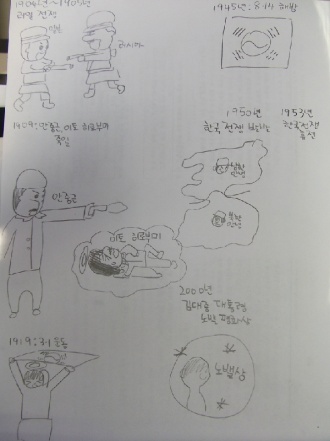 1904년~1905년
러일 전쟁
일본
러시아
1909: 안중근, 이토 히로부미
죽임
안중근
이토 히로부미
1919: 3.1 운동
1945년: 8.15 해방
1950년
한국 전쟁 발발
1953년
한국전쟁
휴전
2000년
김대중 대통령
노벨 평화상
노벨상